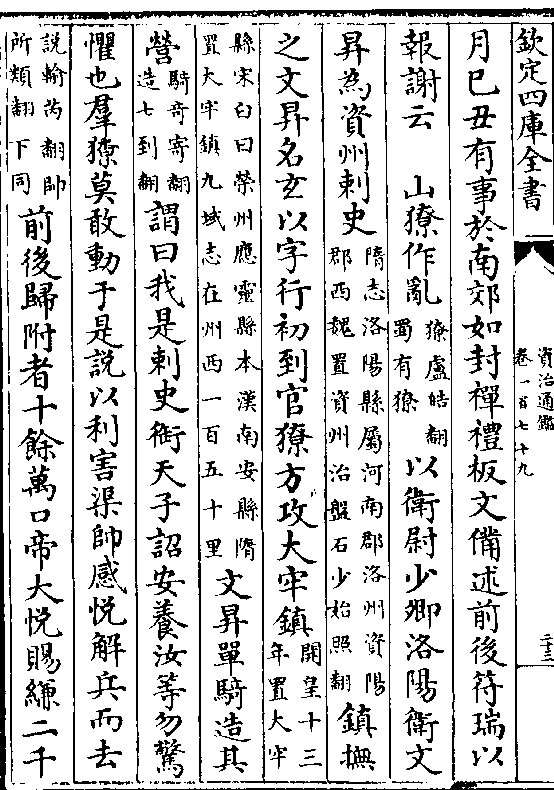 欽定四庫全書
資治通鑑
卷一百七十九
二十三
月已丑有事於南郊如封禪禮板文備述前後符瑞以
報謝云　山獠作亂獠盧皓翻蜀有獠以衛尉少卿洛陽衛文
昇為資州刺史隋志洛陽縣屬河南郡洛州資陽郡西魏置資州治盤石少始照翻鎮撫
之文昇名玄以字行初到官獠方攻大牢鎮開皇十三年置大牢
縣宋白曰榮州應靈縣本漢南安縣隋置大牢鎮九域志在州西一百五十里文昇單騎造其
營騎奇寄翻造七到翻謂曰我是刺史銜天子詔安養汝等勿驚
懼也羣獠莫敢動于是説以利害渠帥感悦解兵而去
説輸芮翻帥所類翻下同前後歸附者十餘萬口帝大悦賜縑二千